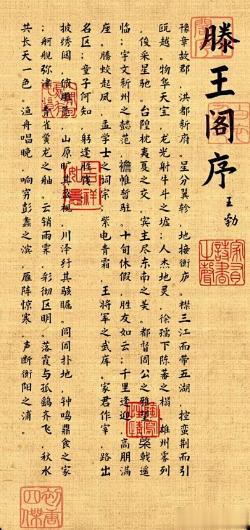 滕王阁序
王勃
豫章故郡，洪都新府。星分翼轸，地接衡庐。襟三江而带五湖，控蛮荆而引
瓯越。物华天宝，龙光射牛斗之墟；人杰地灵，徐孺下陈蕃之榻。雄州雾列
，俊采星驰。台隍枕夷夏之交，宾主尽东南之美。都督阎公之雅望，棨戟遥
临；宇文新州之懿范，襜帷暂驻。十旬休假，胜友如云；千里逢迎，高朋满
座。腾蛟起凤，孟学士之词宗；紫电青霜，王将军之武库。家君作宰，路出
名区；童子何知，躬逢胜饯。
披绣闼，俯雕甍，山原旷其盈视，川泽纡其骇瞩。闾阎扑地，钟鸣鼎食之家
；舸舰弥津，青雀黄龙之舳。云销雨霁，彩彻区明。落霞与孤鹜齐飞，秋水
共长天一色。渔舟唱晚，响穷彭蠡之滨，雁阵惊寒，声断衡阳之浦。